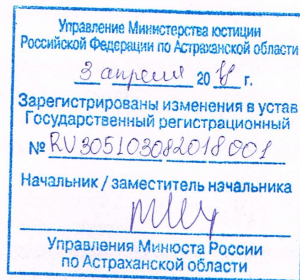 Управление Министерства юстиции
Российской Федерации по Астраханской области
3 апреля 2018 г.
Зарегистрированы изменения в устав
Государственный регистрационный
№ RU305103082018001
Начальник / заместитель начальника
Управления Минюста России
по Астраханской области